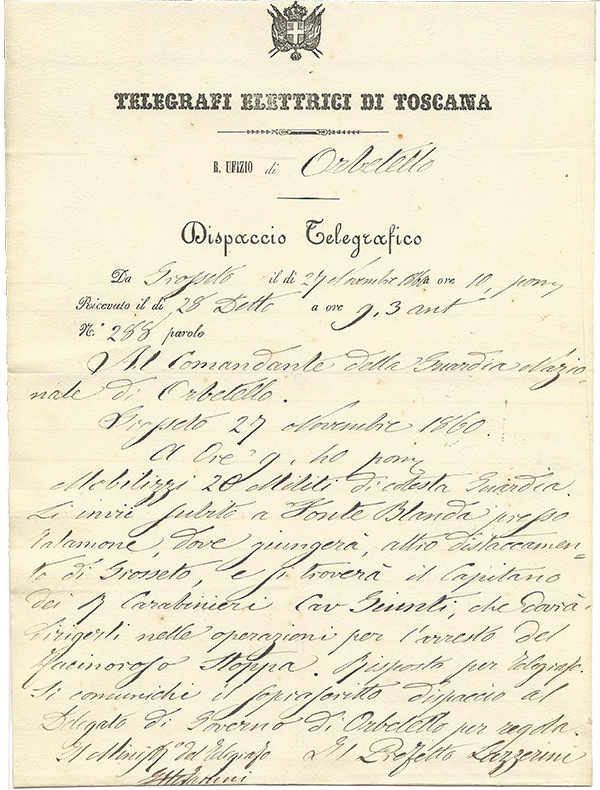 TELEGRAFI ELETTRICI DI TOSCANA
R. UFIZIO di Orbetello
Dispaccio Telegrafico
Da Grosseto il di 27 Novembre 1860 a ore 10, pom
Ricevuto il di 28 Detto a ore 9,3 ant
N.° 288 parole
Al Comandante della Guardia Nazio=
nale di Orbetello.
Grosseto 27 Novembre 1860.
A Ore 9, 40 pom
Mobilizzi 20 Militi di codesta Guardia.
Li invii subito a Fonte Blanda presso
Talamone, dove giungerà, altro distaccamen=
to di Grosseto, e si troverà il Capitano
dei R Carabinieri Cav Giunti, che dovrà
dirigerli nelle operazioni per l'arresto del
facinoroso Stoppa. Risposta per telegrafo.
Si comunichi il soprascritto dispaccio al
Delegato di Governo di Orbetello per regola.
Il Minis. del Telegrafo Il Prefetto Lazzerini